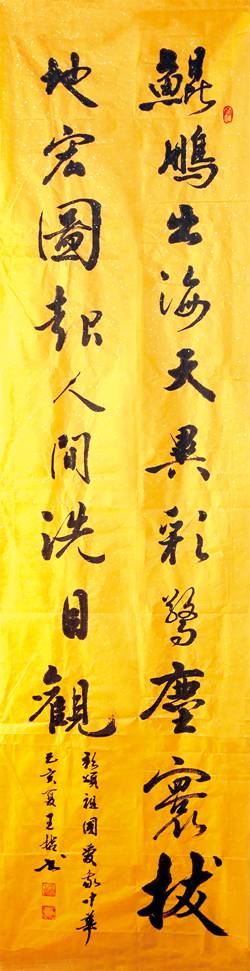 鯤鵬出海天異彩驚塵寰拔
地宏圖起人間洗目觀
頌祖國愛我中華
己亥夏王書